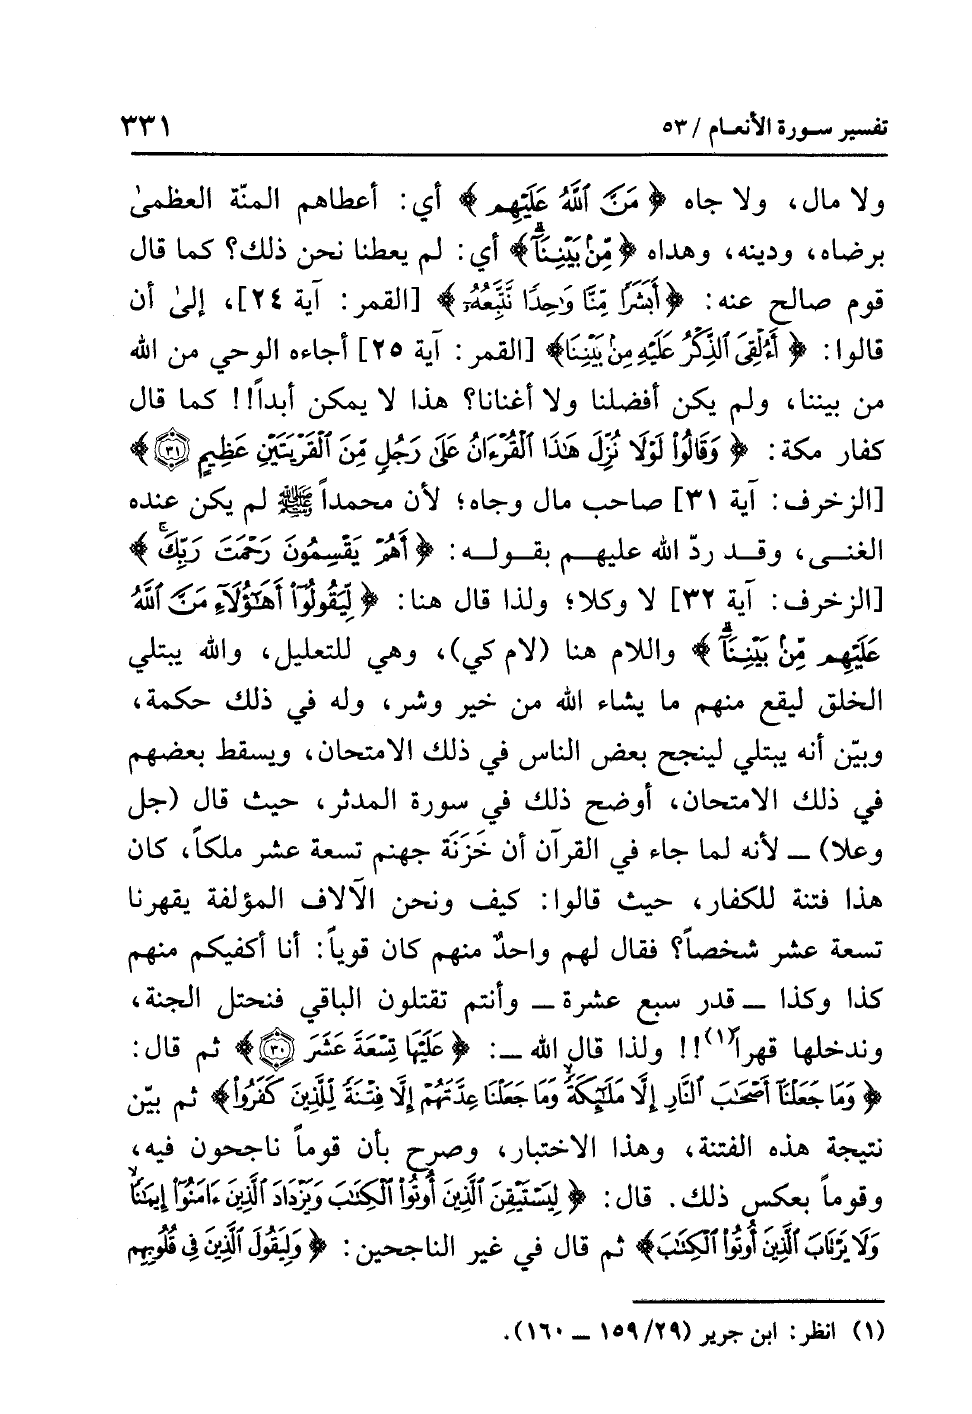 تفسير سورة الأنعام / ٥٣
٣٣١
ولا مال، ولا جاه ﴿مَنَّ ٱللَّهُ عَلَيْهِم﴾ أي: أعطاهم المنّة العظمىٰ
برضاه، ودينه، وهداه ﴿مِّنۢ بَيْنِنَآ﴾ أي: لم يعطنا نحن ذلك؟ كما قال
قوم صالح عنه: ﴿أَبَشَرًا مِّنَّا وَٰحِدًا نَّتَّبِعُهُۥٓ﴾ [القمر: آية ٢٤]، إلىٰ أن
قالوا: ﴿أَءُلْقِىَ ٱلذِّكْرُ عَلَيْهِ مِنۢ بَيْنِنَا﴾ [القمر: آية ٢٥] أجاءه الوحي من الله
من بيننا، ولم يكن أفضلنا ولا أغنانا؟ هذا لا يمكن أبداً!! كما قال
كفار مكة: ﴿وَقَالُوا۟ لَوْلَا نُزِّلَ هَٰذَا ٱلْقُرْءَانُ عَلَىٰ رَجُلٍ مِّنَ ٱلْقَرْيَتَيْنِ عَظِيمٍ ٣١﴾
[الزخرف: آية ٣١] صاحب مال وجاه؛ لأن محمداً ﷺ لم يكن عنده
الغنى، وقد ردّ الله عليهم بقوله: ﴿أَهُمْ يَقْسِمُونَ رَحْمَتَ رَبِّكَ ۚ﴾
[الزخرف: آية ٣٢] لا وكلا؛ ولذا قال هنا: ﴿لِّيَقُولُوٓا۟ أَهَٰٓؤُلَآءِ مَنَّ ٱللَّهُ
عَلَيْهِم مِّنۢ بَيْنِنَآ﴾ واللام هنا (لام كي)، وهي للتعليل، والله يبتلي
الخلق ليقع منهم ما يشاء الله من خير وشر، وله في ذلك حكمة،
وبيّن أنه يبتلي لينجح بعض الناس في ذلك الامتحان، ويسقط بعضهم
في ذلك الامتحان، أوضح ذلك في سورة المدثر، حيث قال (جل
وعلا) ـ لأنه لما جاء في القرآن أن خَزَنَة جهنم تسعة عشر ملكاً، كان
هذا فتنة للكفار، حيث قالوا: كيف ونحن الآلاف المؤلفة يقهرنا
تسعة عشر شخصاً؟ فقال لهم واحدٌ منهم كان قوياً: أنا أكفيكم منهم
كذا وكذا ـ قدر سبع عشرة ـ وأنتم تقتلون الباقي فنحتل الجنة،
وندخلها قهراً(١)!! ولذا قال الله ـ: ﴿عَلَيْهَا تِسْعَةَ عَشَرَ ٣٠﴾ ثم قال:
﴿وَمَا جَعَلْنَآ أَصْحَٰبَ ٱلنَّارِ إِلَّا مَلَٰٓئِكَةً ۙ وَمَا جَعَلْنَا عِدَّتَهُمْ إِلَّا فِتْنَةً لِّلَّذِينَ كَفَرُوا۟﴾ ثم بيّن
نتيجة هذه الفتنة، وهذا الاختبار، وصرح بأن قوماً ناجحون فيه،
وقوماً بعكس ذلك. قال: ﴿لِيَسْتَيْقِنَ ٱلَّذِينَ أُوتُوا۟ ٱلْكِتَٰبَ وَيَزْدَادَ ٱلَّذِينَ ءَامَنُوٓا۟ إِيمَٰنًا ۙ
وَلَا يَرْتَابَ ٱلَّذِينَ أُوتُوا۟ ٱلْكِتَٰبَ﴾ ثم قال في غير الناجحين: ﴿وَلِيَقُولَ ٱلَّذِينَ فِى قُلُوبِهِم
(١) انظر: ابن جرير (٢٩/١٥٩ ـ ١٦٠).